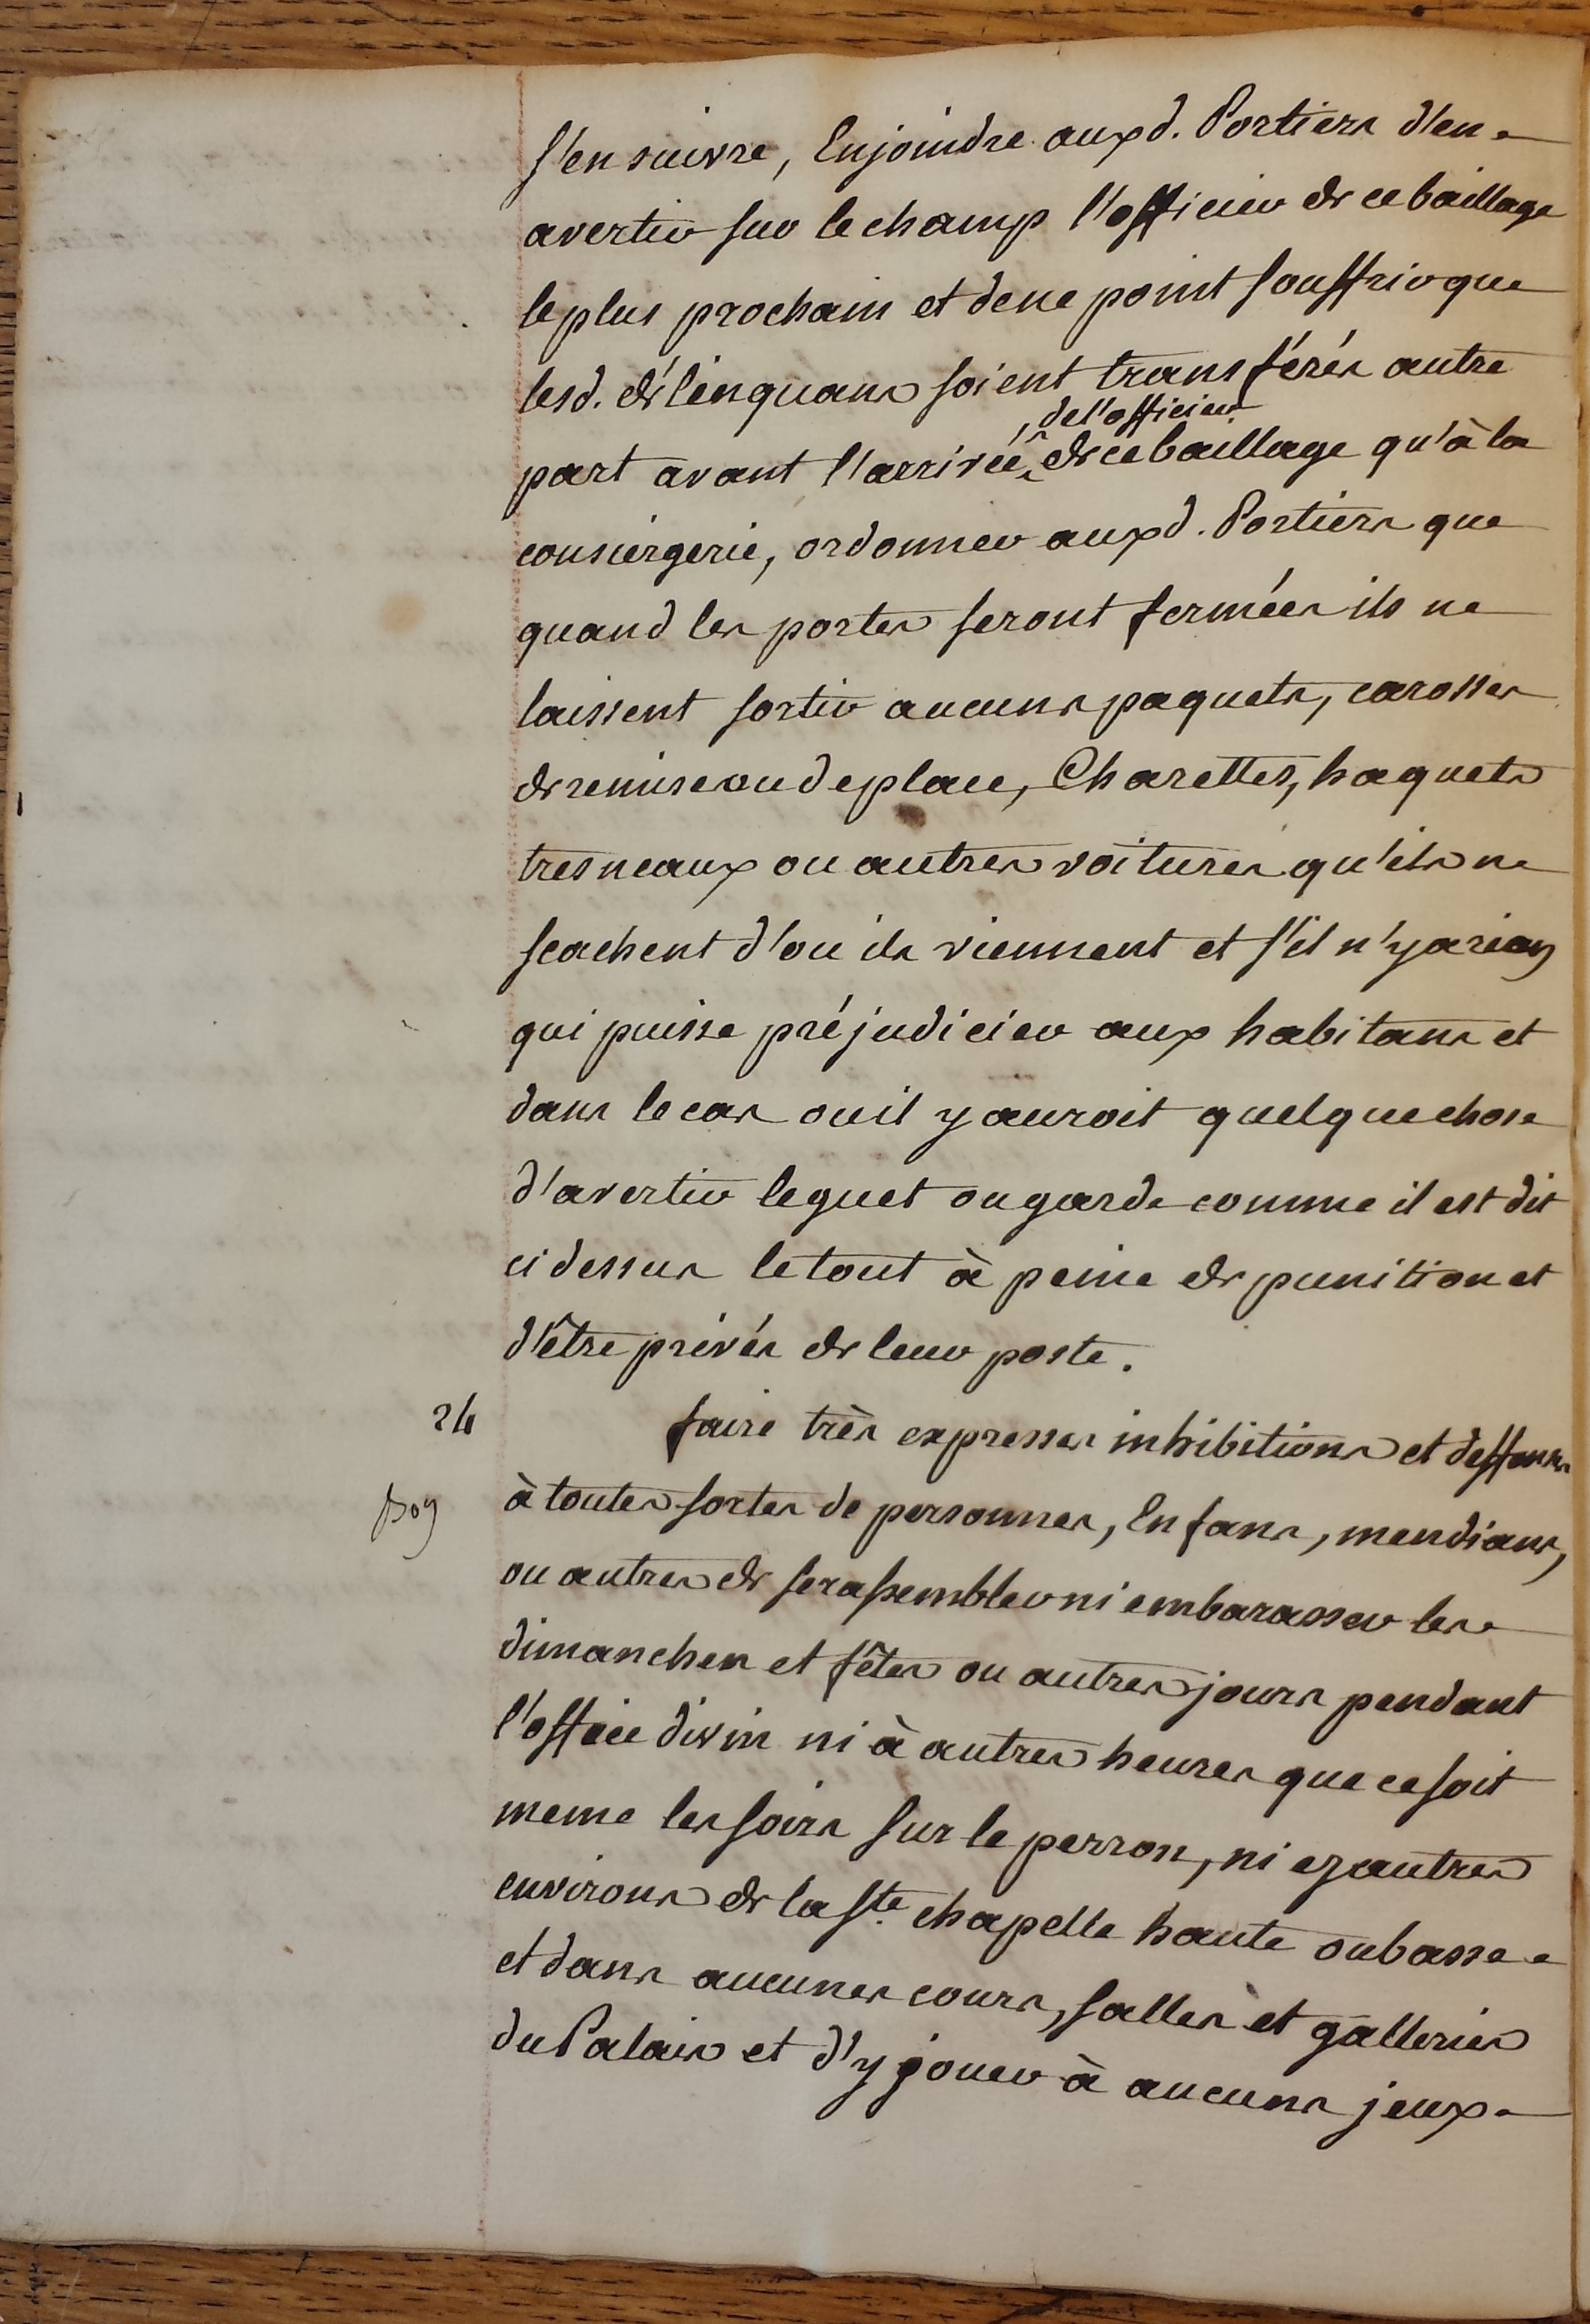 s'en suivre, Enjoindre auxd. Portiers d'en
avertir sur le champ l'officier de ce baillage
le plus prochain et de ne point souffrir que
lesd. délinquans soient transférés autre
de l'officier
part avant l'arrivée de ce baillage qu'à la
consiergerie, ordonner auxd. Portiers que
quand les portes seront fermées ils ne
laissent sortir aucuns paquets, carosses
de remise ou de place, Charettes, haquets
tresneaux ou autres voitures qu'ils ne
scachent d'ou ils viennent et s'il n'y a rien
qui puisse préjudicier aux habitans et
dans le cas ou il y auroit quelque chose
d'avertir le guet ou garde comme il est dit
ci dessus le tout à peine de punition et
d'être privés de leur poste.
24 faire très expresses inhibitions et deffenses
Bon à toutes sortes de personnes, Enfans, mendians,
ou autres de se rassembler ni embarasser les
dimanches et fêtes ou autres jours pendant
l'office divin ni à autres heures que ce soit
meme les soirs sur le perron, ni ez autres
environs de la Ste. chapelle haute ou basse
et dans aucunes cours, salles et galleries
du Palais et d'y jouer à aucuns jeux